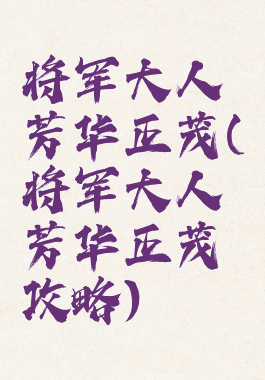 将军大人
芳华正茂(
将军大人
芳华正茂
攻略)